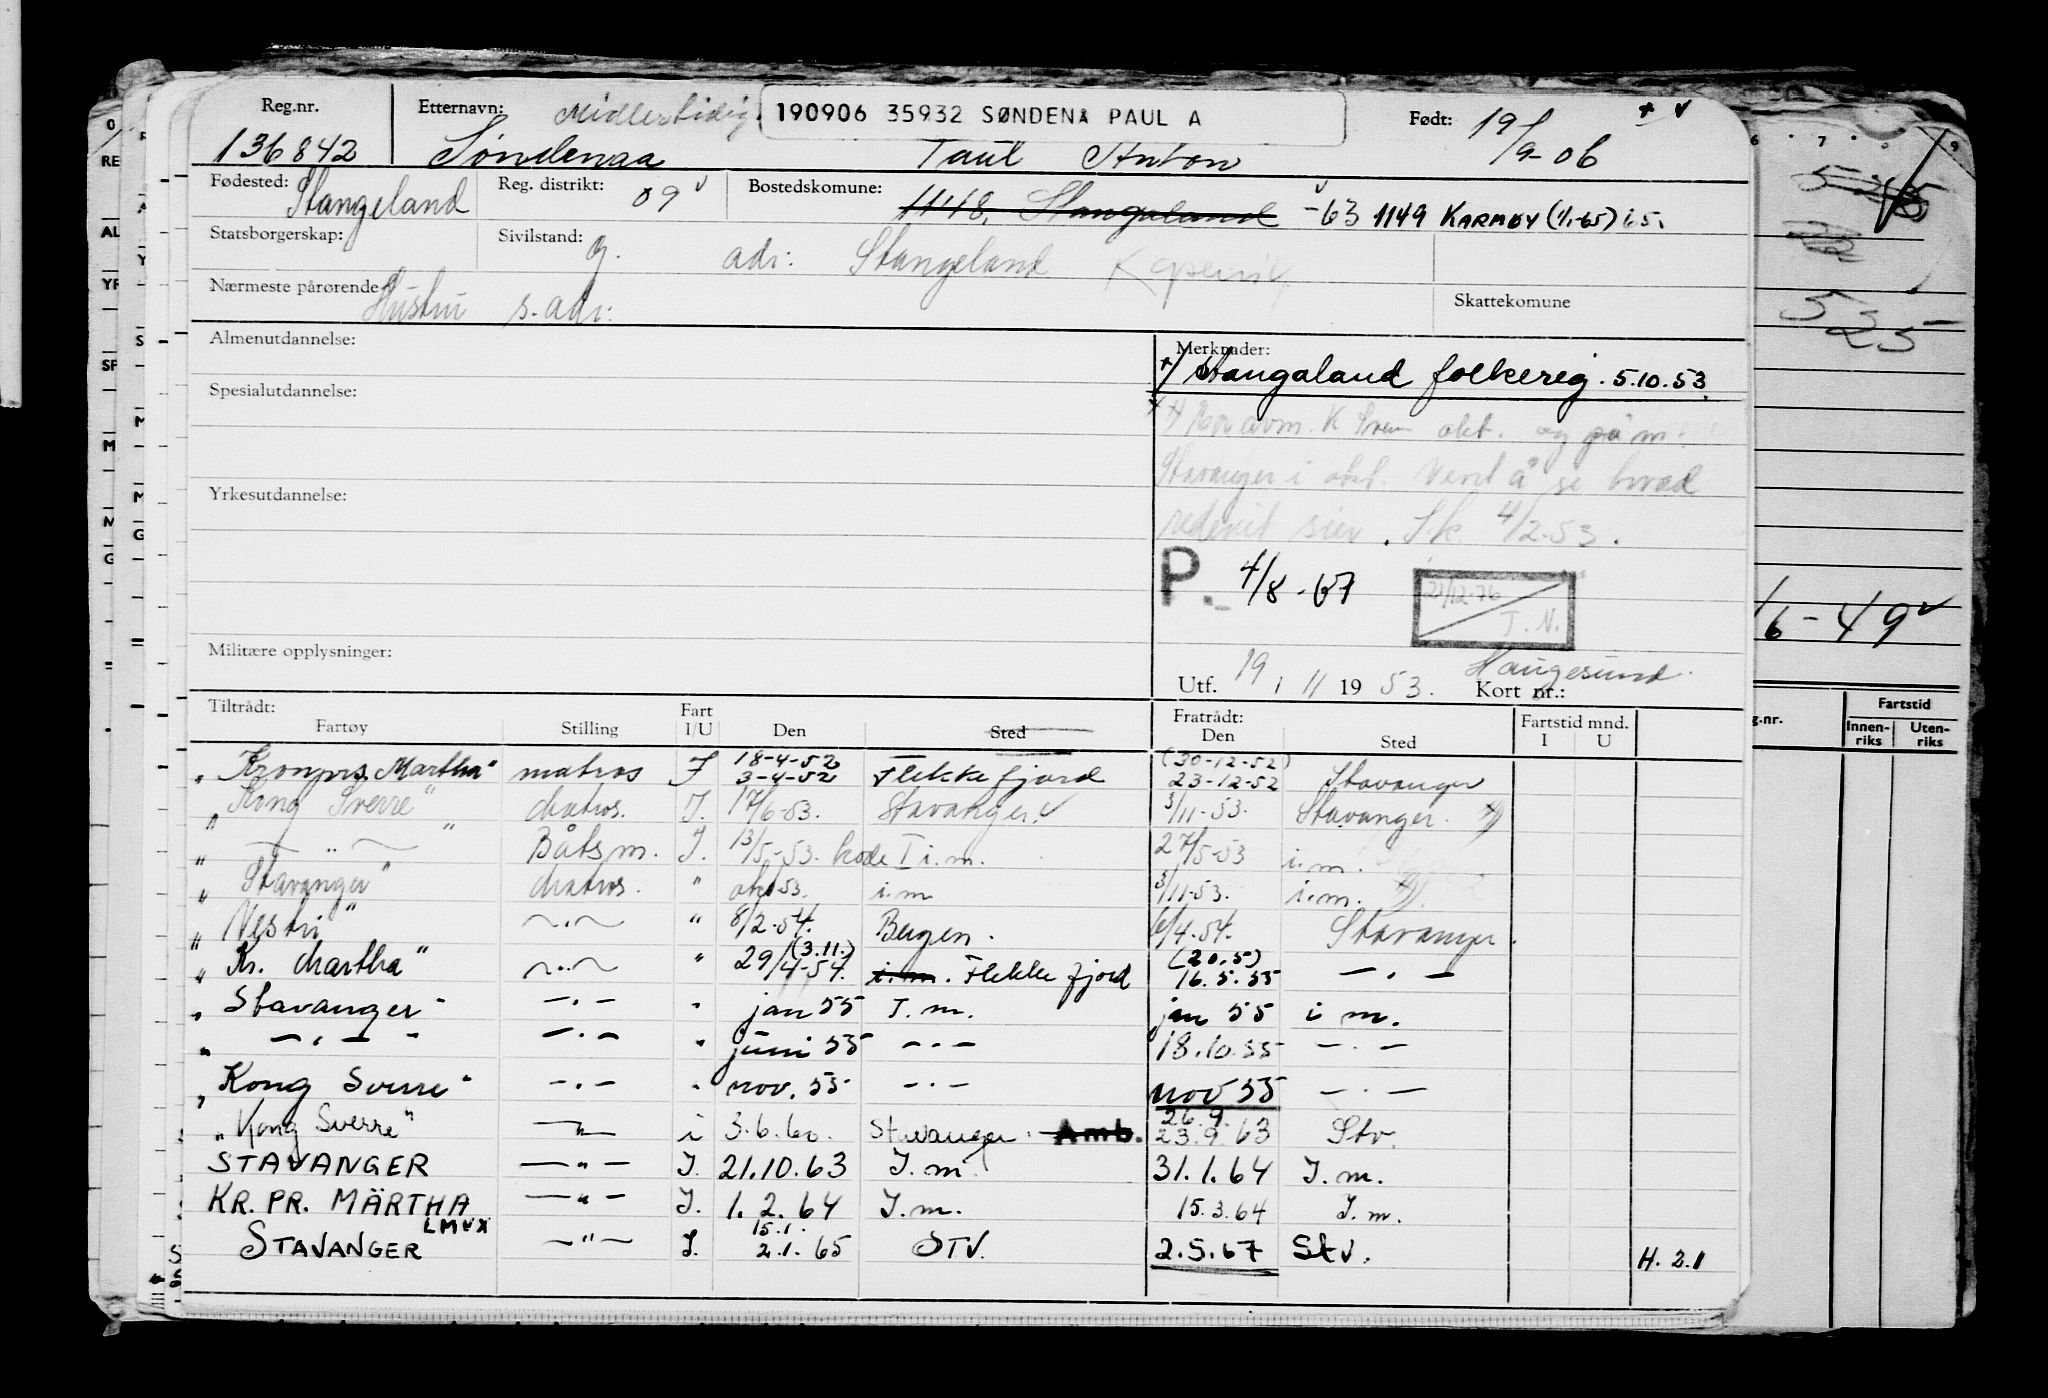 Reg.nr. Etternavn: Midlertidig 190906 35932 SØNDENA PAUL A Født: 19/9-06
136842 Søndenaa Paul Anton
Fødested: Stangeland Reg. distrikt: 09 Bostedskomune: 1148, Stangaland -63 1149 KARMØY (1/1-65) i 5.
Statsborgerskap: Sivilstand: g. adr: Stangeland Kopervik
Nærmeste pårørende Hustru s. adr: Skattekomune
Almenutdannelse: Merknader:
*) Stangaland folkereg. 5.10.53.
Spesialutdannelse:
okt. og på m.
Stavanger i okt. Vent å se hvad
Yrkesutdannelse:
rederiet sier. Sk. 4/2-53.
P. 4/8-67 21/12-76 T.N.
Militære opplysninger:
Utf. 19 / 11 1953. Kort nr.: Haugesund.
Tiltrådt: Fratrådt:
Fartøy Stilling Fart I/U Den Sted Den Sted Fartstid mnd. I U
„Kronprs. Martha" matros I 18-4-52 3-4-52 Flekkefjord (30-12-52) 23-12-52 Stavanger
„Kong Sverre" Matros. I. 17/6-53. Stavanger. 3/11-53. Stavanger.
„ — " — " Båtsm. I. 13/5-53. kode I i.m. 27/5-53 i.m.
„Stavanger" Matros. " okt 53. i.m 3/11-53. i.m.
„Vestri" — " — " 8/2-54. Bergen. 6/4-54. Stavanger.
„Kr. Martha" — " — " 29/4-54. (3.11.) i.m. Flekkefjord (20.5) 16.5.55 — . —
„Stavanger" — . — " jan 55 I.m. jan 55 i m.
„ — . — " — . — " juni 55 — . — 18.10.55 — . —
„Kong Sverre" — . — " nov. 55 — . — nov 55 — . —
„Kong Sverre" — " — i 3.6.60. Stavanger. Amb. 26.9. 23.9.63 Stv.
STAVANGER — " — I. 21.10.63 I.m. 31.1.64 I.m.
KR. PR. MÄRTHA — " — I. 1.2.64 I.m. 15.3.64 I.m.
STAVANGER LMVX — " — I. 15.1. 2.1.65 STV. 2.5.67 Stv. H. 2.1
525
/6-49
g.nr. Fartstid
Innen-riks Uten-riks